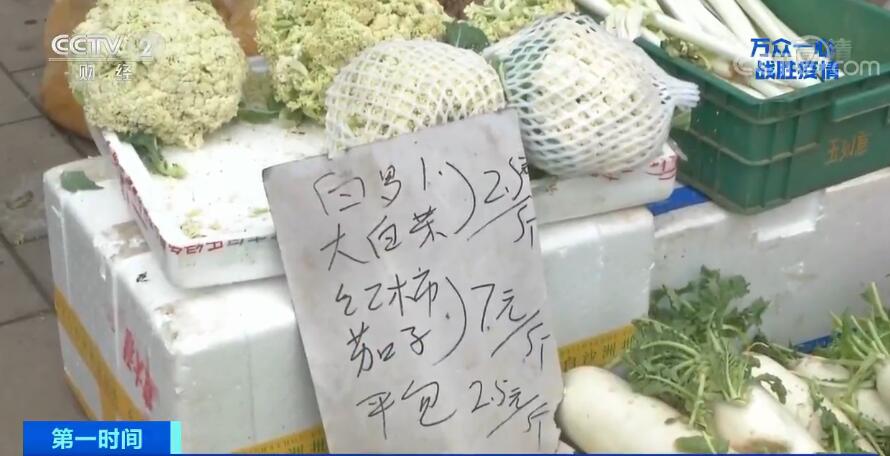 CCTV 2
财经
万众一心
战胜疫情
.com
白罗卜
大白菜
2.5元/斤
红柿
茄子
7元/斤
平包 2.5元/斤
白沙洲
第一时间